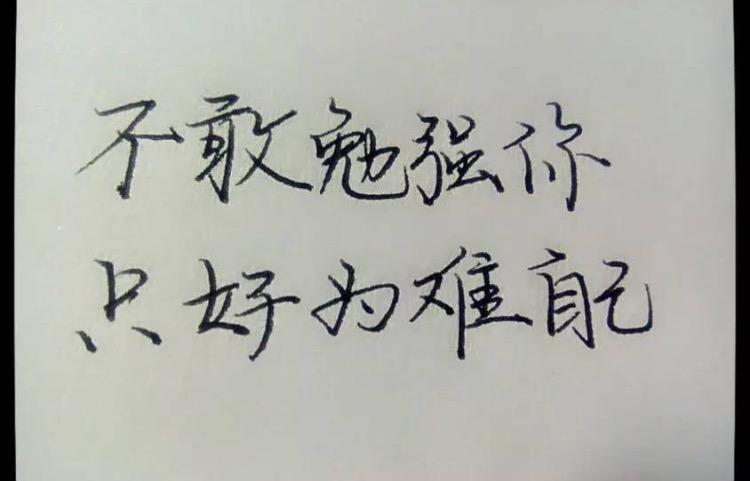 不敢勉强你
只好为难自己